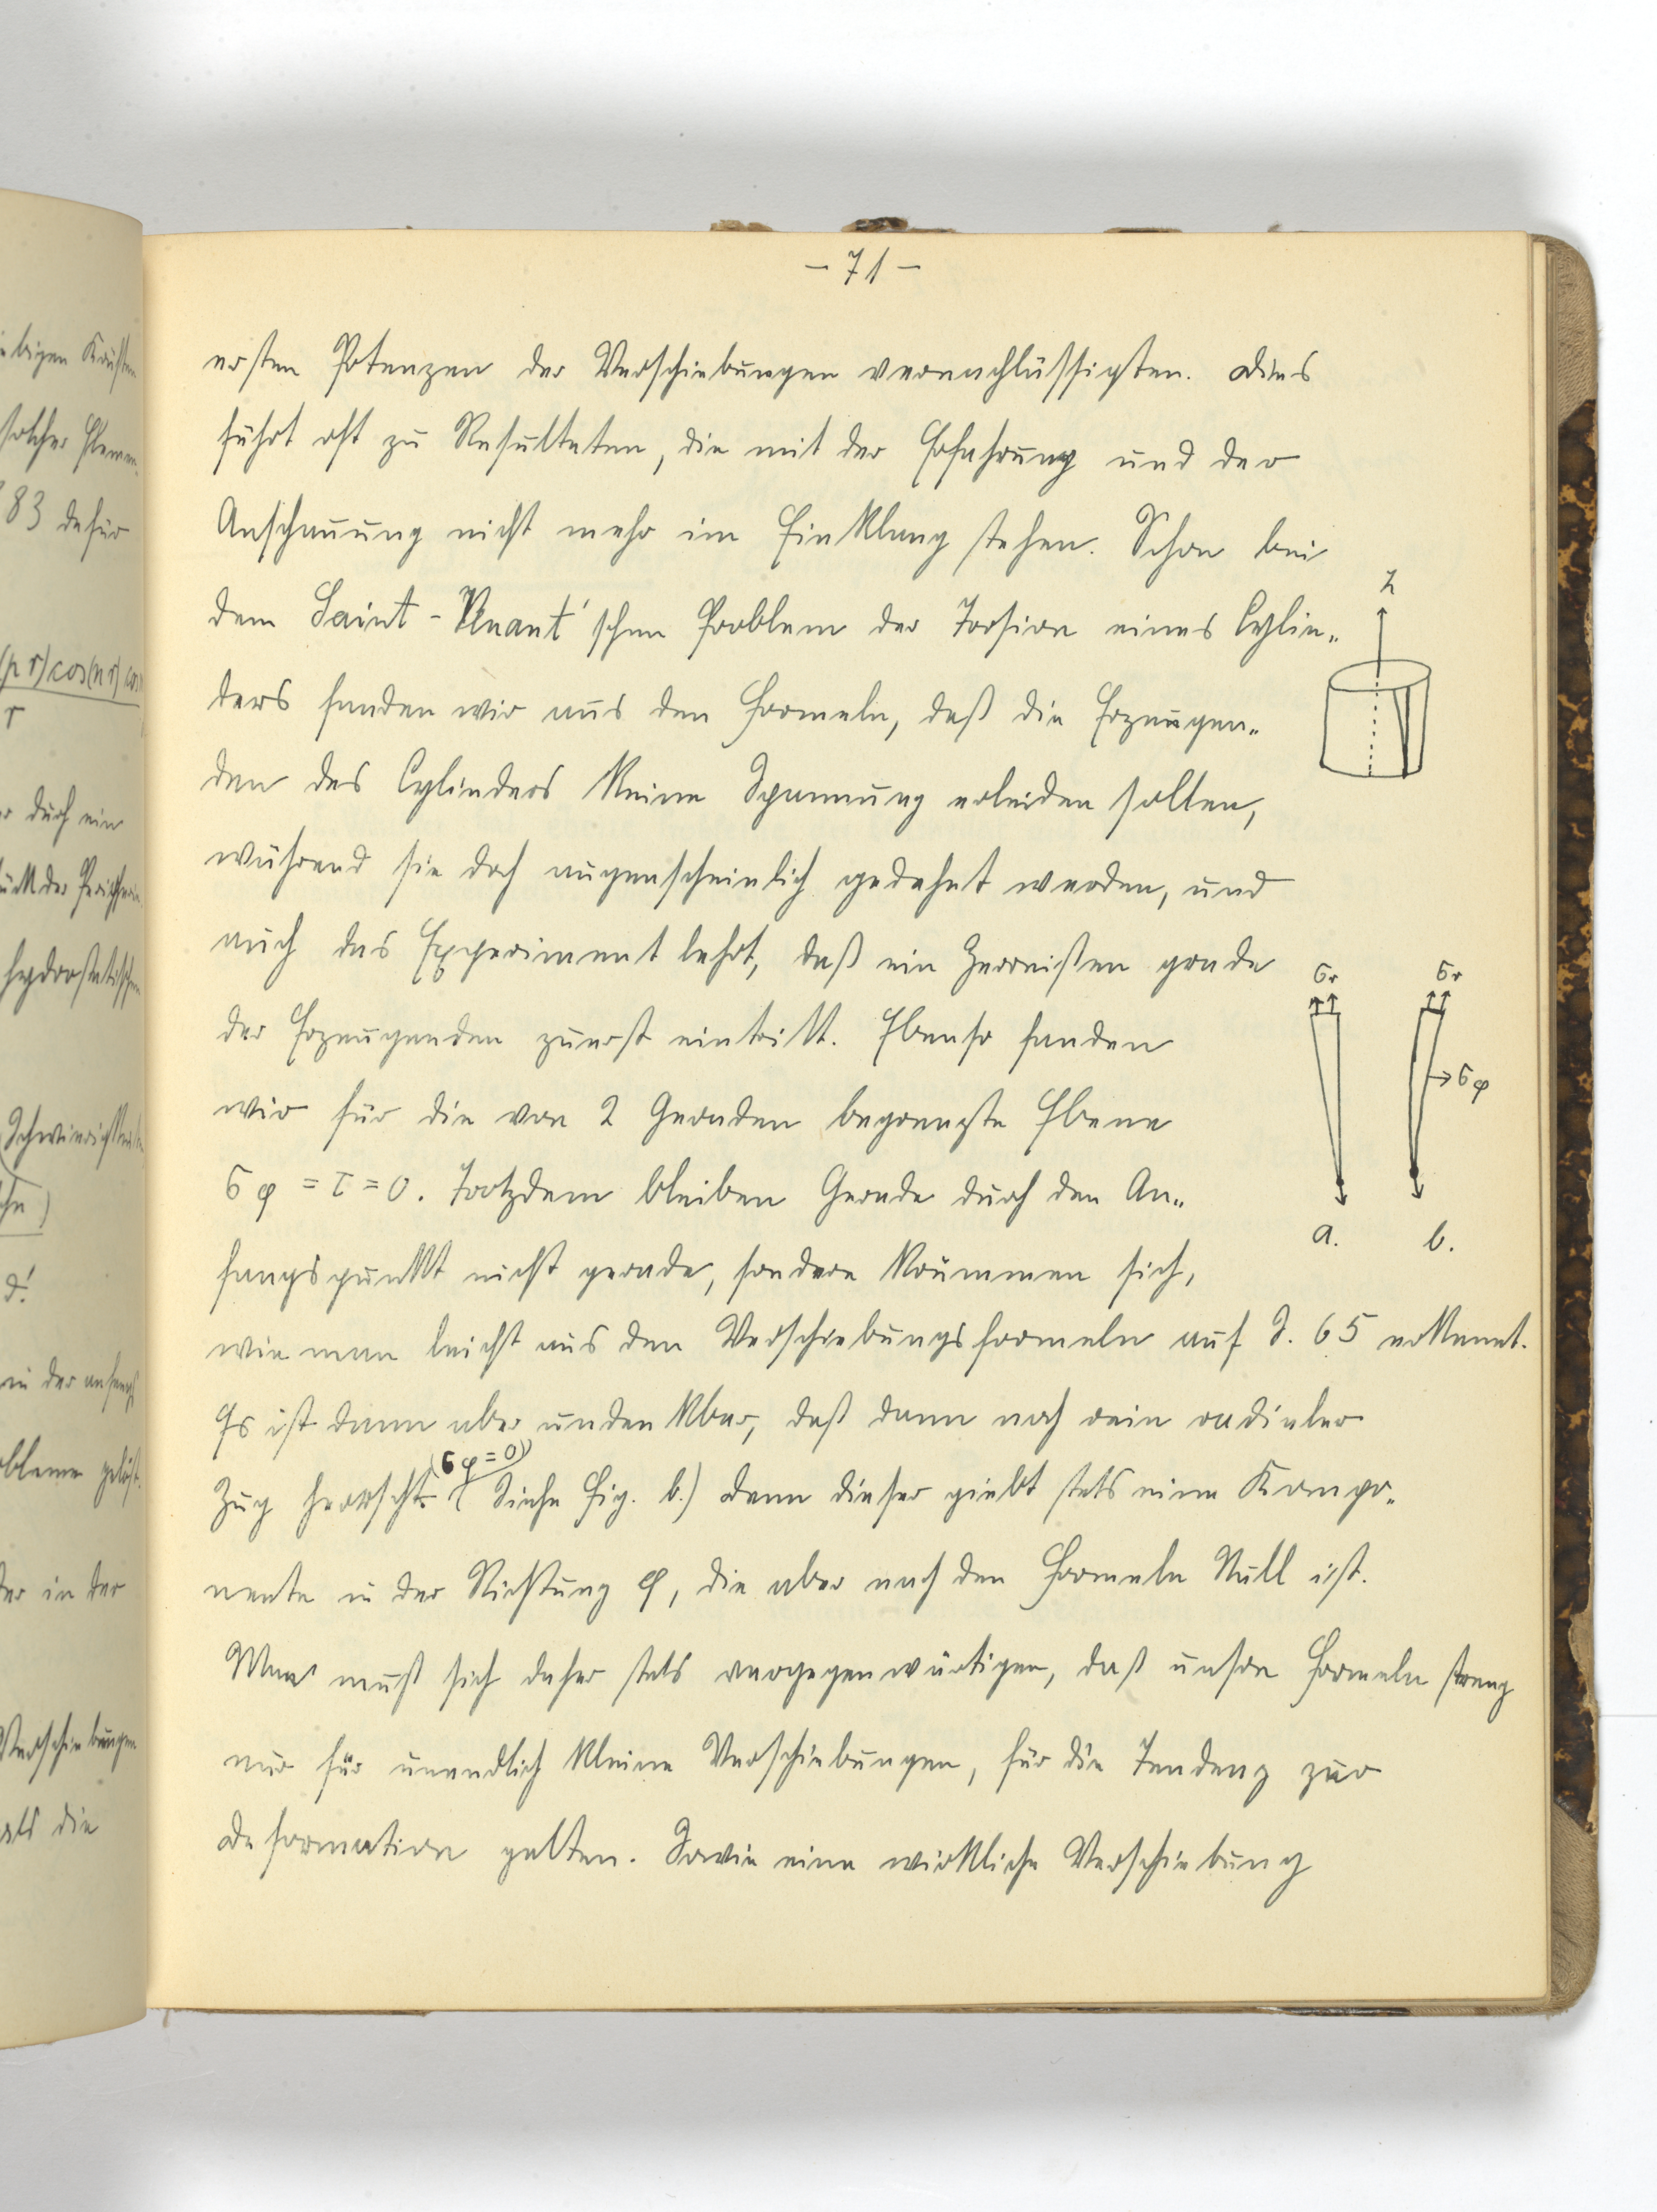 - 71 -
ersten Potenzen der Verschiebungen vernachlässigten. Dies
führt oft zu Resultaten, die mit der Erfahrung und der
Anschauung nicht mehr im Einklang stehen. Schon bei
dem Saint-Venant'schen Problem der Torsion eines Cylin„
ders fanden wir aus den Formeln, daß die Erzeugen„
den des Cylinders keine Spannung erleiden sollten,
während sie doch augenscheinlich gedehnt werden, und
auch das Experiment lehrt, daß ein Zerreißen grade
der Erzeugenden zuerst eintritt. Ebenso fanden
wir für die von 2 Geraden begrenzte Ebene
σφ = τ = 0. Trotzdem bleiben Gerade durch den An„
fangspunkt nicht gerade, sondern krümmen sich,
wie man leicht aus den Verschiebungsformeln auf S. 65 erkennt.
Es ist dann aber undenkbar, daß dann noch rein radialer
(σφ = 0)
Zug herrscht. (Siehe Fig. b.) Denn dieser giebt stets eine Kompo„
nente in der Richtung φ, die aber nach den Formeln Null ist.
Man muß sich daher stets vergegenwärtigen, daß unsre Formeln streng
nur für unendlich kleine Verschiebungen, für die Tendenz zur
Deformation gelten. Sowie eine wirkliche Verschiebung
z
σr
σr
σφ
a.
b.
83 dafür
(pr) cos(nr) cos
r
durch ein
der in der
Verschiebungen
als die